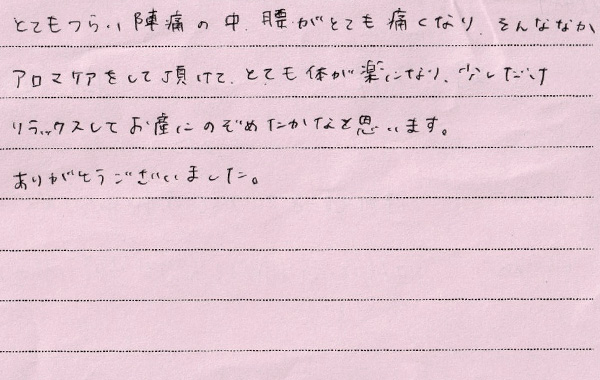 とてもつらい陣痛の中、腰がとても痛くなり、そんななか、
アロマケアをして頂けて、とても体が楽になり、少しだけ
リラックスしてお産にのぞめたかなと思います。
ありがとうございました。